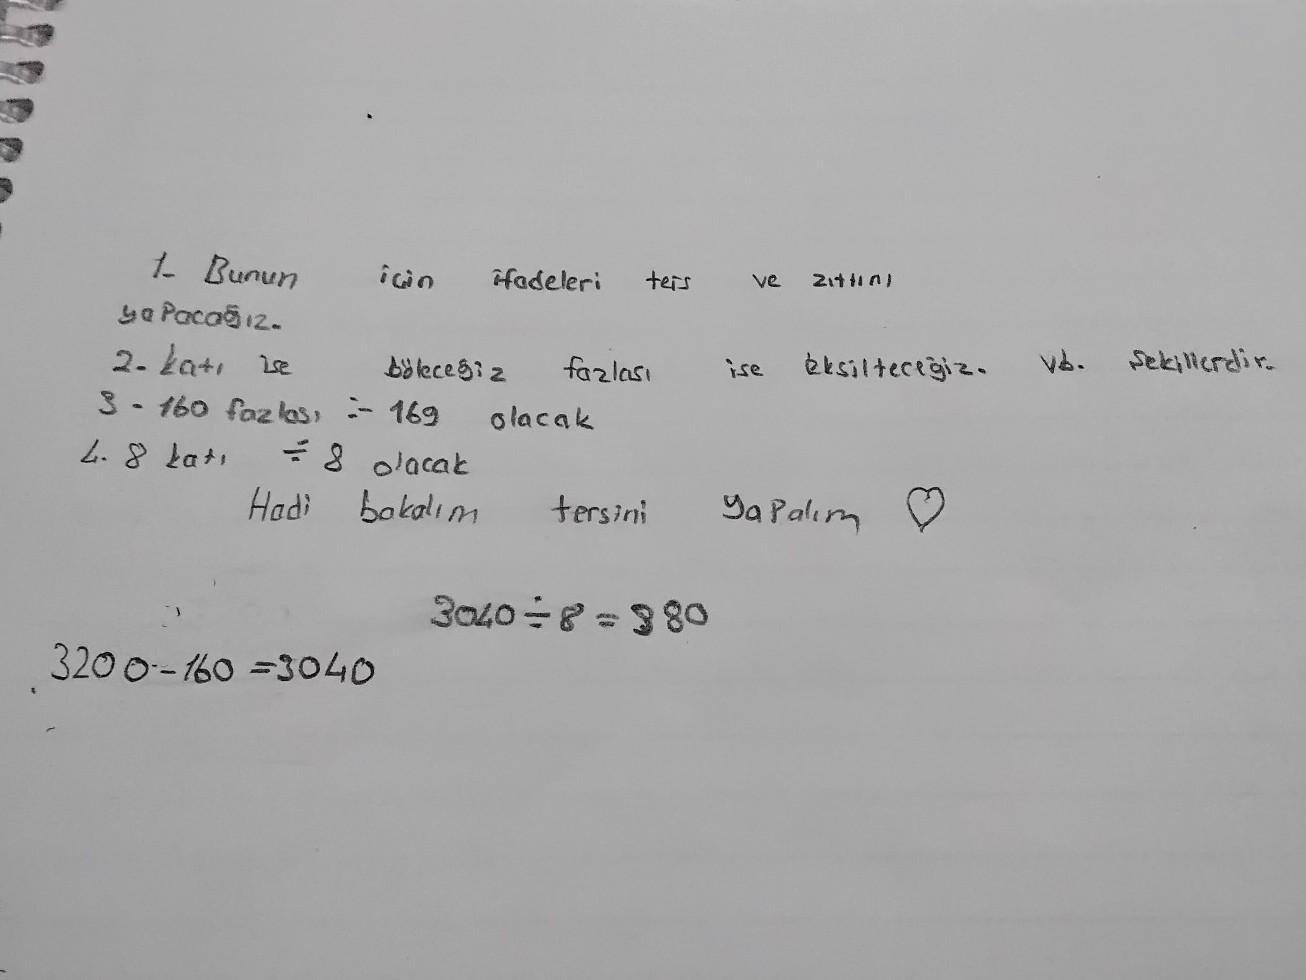 1- Bunun için ifadeleri ters ve zıttını
yapacağız.
2- katı ise böleceğiz fazlası ise eksilteceğiz. vb. şekillerdir.
3 - 160 fazlası :- 169 olacak
4. 8 katı ÷ 8 olacak
Hadi bakalım tersini yapalım ♡
3040 ÷ 8 = 380
3200 - 160 = 3040